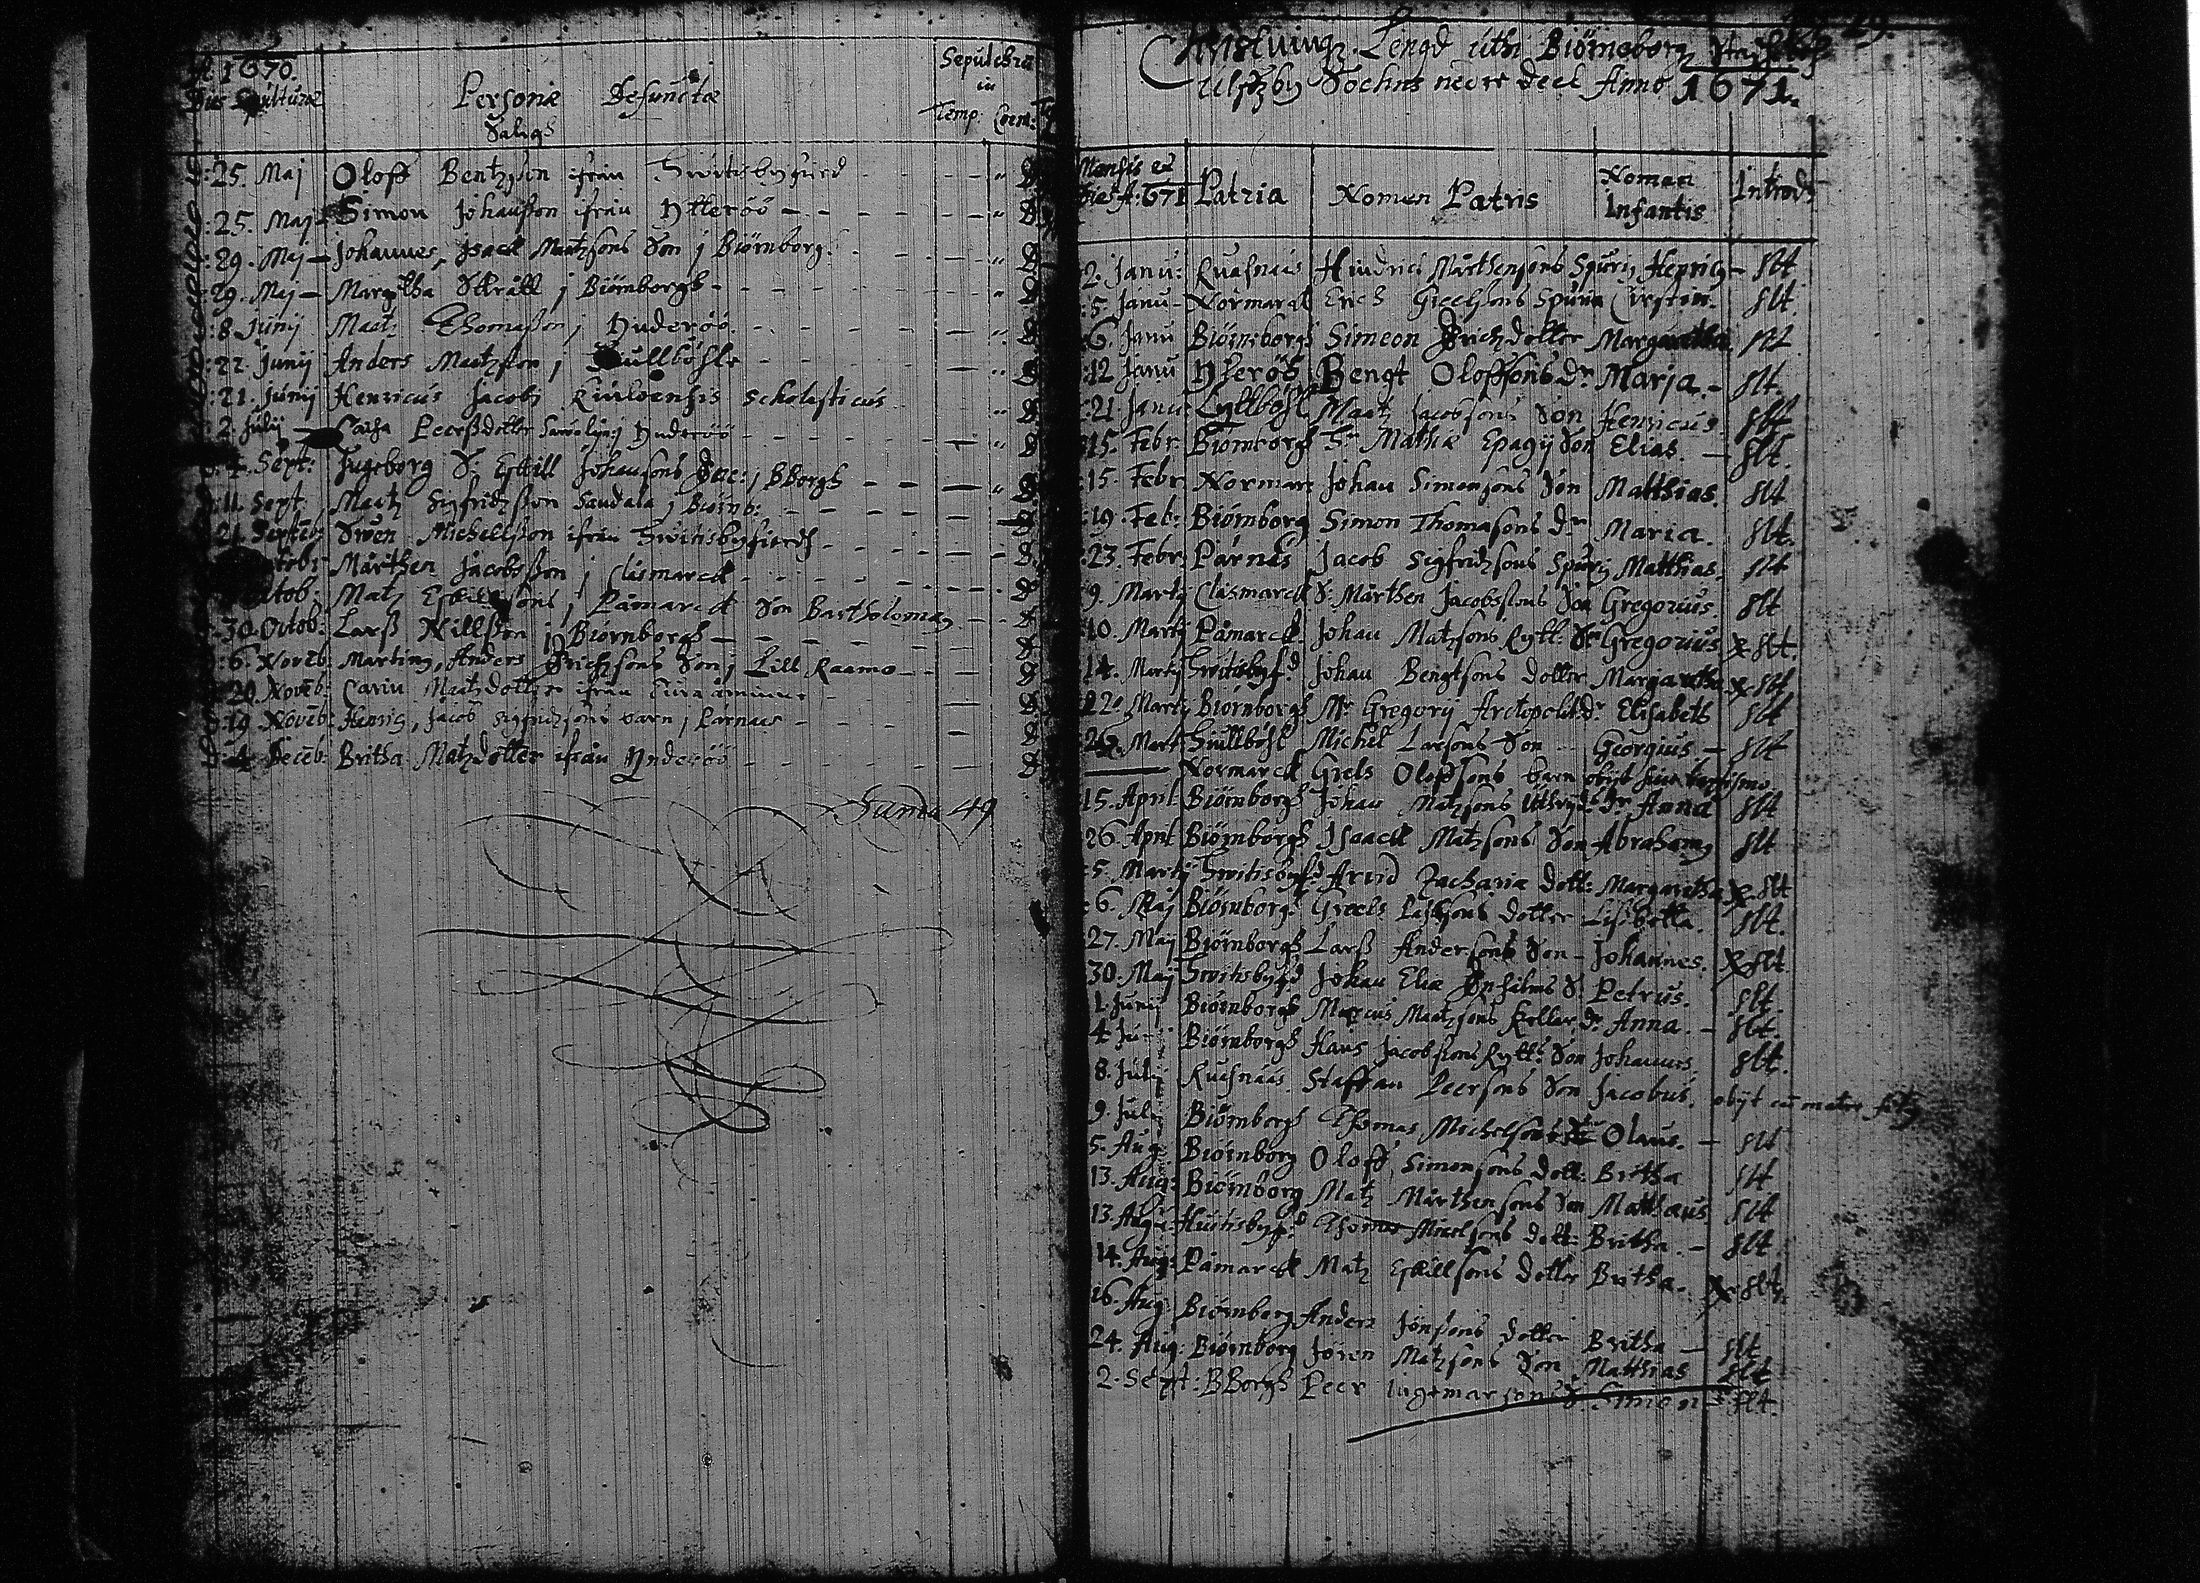 A 1670.
Dies Sepulturæ
Personæ Defunctæ
Saligh
Sepulchra
in
Temp: Coem:
25. Maj Oloff Bentzson ifrån
25. Maj Simon Johansson ifrån Ytteröö
29. Maj Johannes, Jsack Matzsons Son j Biörnborg.
29. Maj Margetha j Biörnborgh
8. Junij Matz Thomasson j Ynderöö
22. Junij Anders Matzson j
21. Junij Henricus Jacobj Kiuloensis Scholasticus
2. Julij Peerssdotter j Ynderöö
4. Sept: Ingeborg S: Eskill Johansons j BBorgh
11. Sept. Matz Sigfridzson Sandala j Biörnb:
21. Septeb: Swen Michellsson ifrån
Octob: Mårthen Jacobsson j Clasmarck
Octob: Matz Eskillsons j Påmarck Son Bartholomæ
30. Octob: Larss Nillsson j Biörnborgh
6. Noveb: Martin, Anders Erichsons Son j Lill Raamo
20. Noveb: Carin Matzdotter ifrån
19 Noveb: Henrig, Jacob Sigfridzsons barn j Pårnäs
4 Deceb: Britha Matzdotter ifrån Ynderöö
Suma 49
29.
Christningz Lengd uthi Biörneborg
Ulfzby Sochns nedre deel Anno 1671.
Mensis et
dies A: 671 Patria Nomen Patris Nomen Infantis Introd:
2. Janu: Rvasnäs Hindrich Mårthensons Spuri Henrig slt
5. Janu Normarck Erich Greelsons Spuria Cirstin. slt
6. Janu Biörneborg Simeon Erichz dotter Margaretha slt
12 Janu Yteröö Bengt Oloffsons Dr Maria slt.
21. Janu: Lyttböhl Matz Jacobsons Son Henricus slt
15. Febr: Biörnborgh Mathiæ Epagij Son Elias. slt.
15. Febr Normarc Johan Simonsons Son Matthias slt
19. Feb: Biörnborg Simon Thomasons Dr Maria. slt.
23. Febr: Pårnäs Jacob Sigfridzsons Spuri Matthias. slt
9. Martij Clasmarck S: Mårthen Jacobssons Son Gregorius slt
10. Martij Påmarck Johan Matzsons Rytt: Sn Gregorius slt.
14. Martij Johan Bengtsons dotter Margaretha slt
22. Martij Biörnborgh Mr Gregorij Dr Elisabeth slt
26. Mart Michel Larsons Son Georgius slt
Normarck Grels Oloffsons barn obijt sine baptismo
15. April Biörnborgh Johan Matzsons Dr Anna slt
26. April Biörnborgh Jsaack Matzsons Son Abraham slt
5. Martij Arvid Zachariæ dott: Margaretha slt
6. Maj Biörnborg Greels dotter Lissbetta. slt.
27. Maij Biörnborgh Larss Andersons Son Johannes. slt.
30. Maij Johan Eliæ S: Petrus. slt.
1. Junij Biörnborgh Marcus Matzsons Keller Dr Anna. slt.
4 Biörnborgh Hans Jacobssons Rytt: Son Johannes slt.
8. Julij Staffan Peersons Son Jacobus, obijt cu matre
9. Julij Biörnborgh Thomas Michelsons Olaus. slt
5. Aug: Biörnborg Oloff Simonsons dott: Britha slt
13. Aug: Biörnborg Matz Mårthensons Son Matthæus slt
13. Aug: Thomas Michelsons dott: Britha slt
14. Aug: Påmarck Matz Eskillsons dotter Britha. slt.
16. Aug Biörnborg Anders Jönsons dotter Britha slt
24. Aug: Biörnborg Jören Matzsons Son Matthias slt
2. Sept: BBorgh Peer Ingemarsons S. Simon slt.